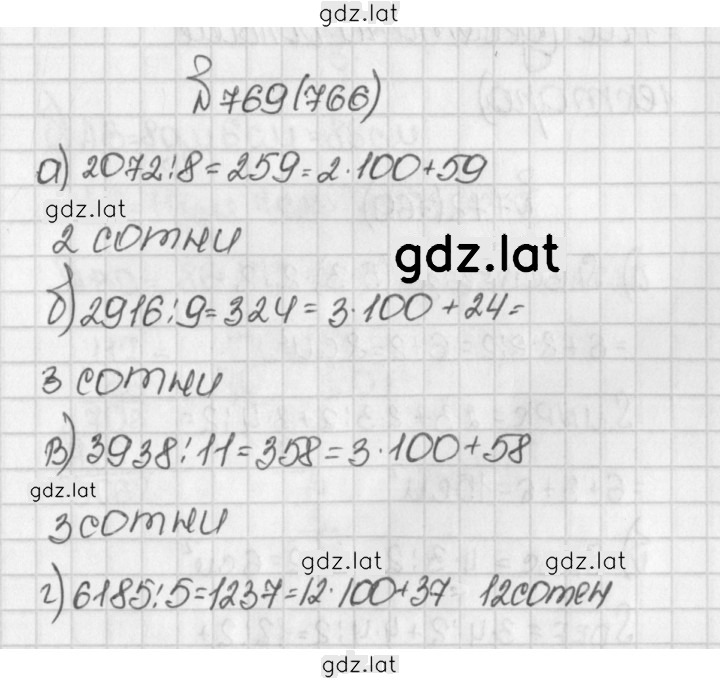 gdz.lat
№ 769 (766)
а) 2072:8 = 259 = 2·100+59
gdz.lat
2 сотни
gdz.lat
б) 2916:9 = 324 = 3·100 + 24 =
3 сотни
в) 3938:11 = 358 = 3·100+58
gdz.lat
3 сотни
gdz.lat gdz.lat
г) 6185:5=1237=12·100+37 12 сотен
gdz.lat